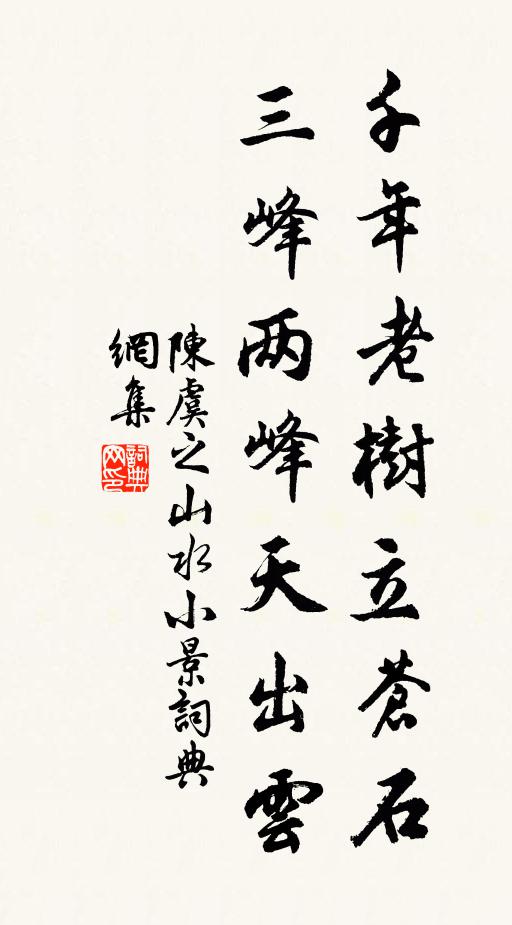 千年老樹立蒼石
三峰两峰天出雲
陳虞之山水小景詞典
網集
詞典
网印